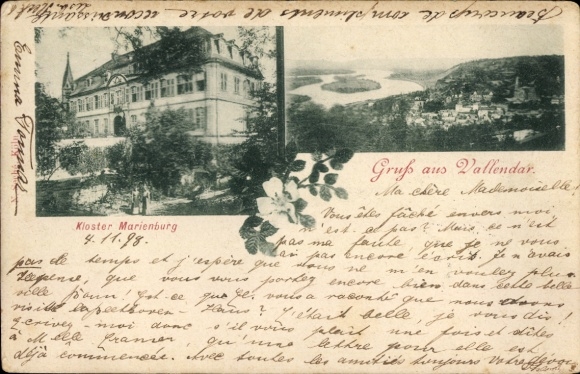 Beaucoup de compliments de votre reconnaissante
Emma
Gruß aus Vallendar.
Kloster Marienburg
4.11.98.
Ma chère Mademoiselle!
Vous êtes fâché envers moi
n'est-al pas? Mais, ce n'est
pas ma faute, que je ne vous
ai pas encore écrit. Je n'avais
pas de temps et j'espère que vous ne m'en voulez plus.
que vous vous portez encore bien dans cette belle
Est-ce que vous a raconté que nous avons
visité Beethoven-Haus? C'était belle je vous dis!
Ecrivez-moi donc s'il vous plaît une fois et dites
à Melle Cramer, qu'une lettre pour elle est
déjà commencée. Avec toutes les amitiés toujours Votre